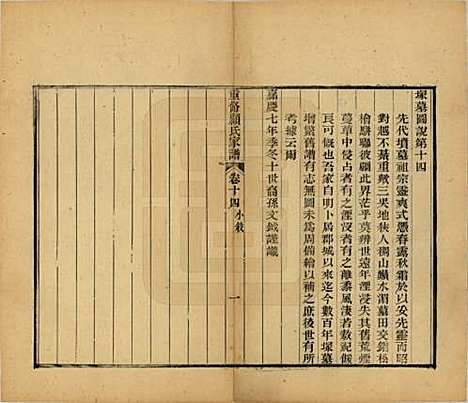 塚墓圖說第十四
先代墳墓祖宗靈爽式憑春露秋霜於以妥先靈而昭
對越不綦重歟三吳地狹人稠山鄉水湄墓田交錯松
檜聯駢彼此疑界茫乎莫辨世遠年湮浸失其舊荒煙
蔓草中侵占者有之湮沒者有之離黍風淒若敖祀餒
良可慨也吾家自明初十上居郡城以來迄今數百年塚墓
增營舊譜有志無圖未為周備繪以補之庶後世有所
考據云爾
嘉慶七年季冬十世裔孫文鉞謹識
重修顧氏家譜
卷十四小敘
一